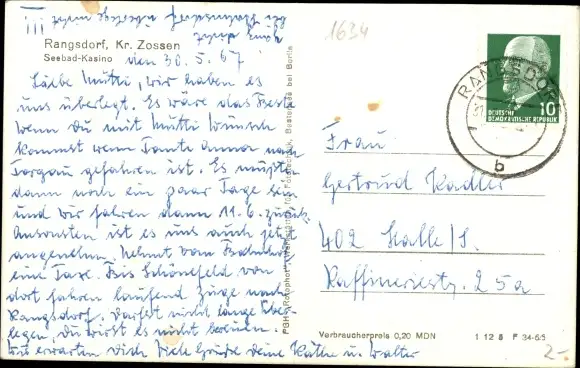 Rangsdorf, Kr. Zossen
Seebad-Kasino
den 30. 5. 67
Liebe Mutti, wir haben es
uns überlegt. Es wäre das Beste
wenn du mit Mutti Wunsch
kommst wenn Tante Anna nach
Torgau gefahren ist. Es müßten
dann noch ein paar Tage sein
und wir fahren dann 11.6. zurück
Ansonsten ist es uns auch jetzt
angenehm. Nehmt vom Bahnhof
eine Taxe. Bis Schönefeld von
dort fahren laufend Züge nach
Rangsdorf. Darfst nicht lange über-
legen, du wirst es nicht bereuen.
Wir erwarten dich Viele Grüße deine Käthe u. Walter
1634
RANGSDORF
10
DEUTSCHE
DEMOKRATISCHE REPUBLIK
b
Frau
Gertrud Kadler
402 Halle/S.
Raffineriestr. 25a
Verbraucherpreis 0,20 MDN
1 12 8 F 34-6/5
2-